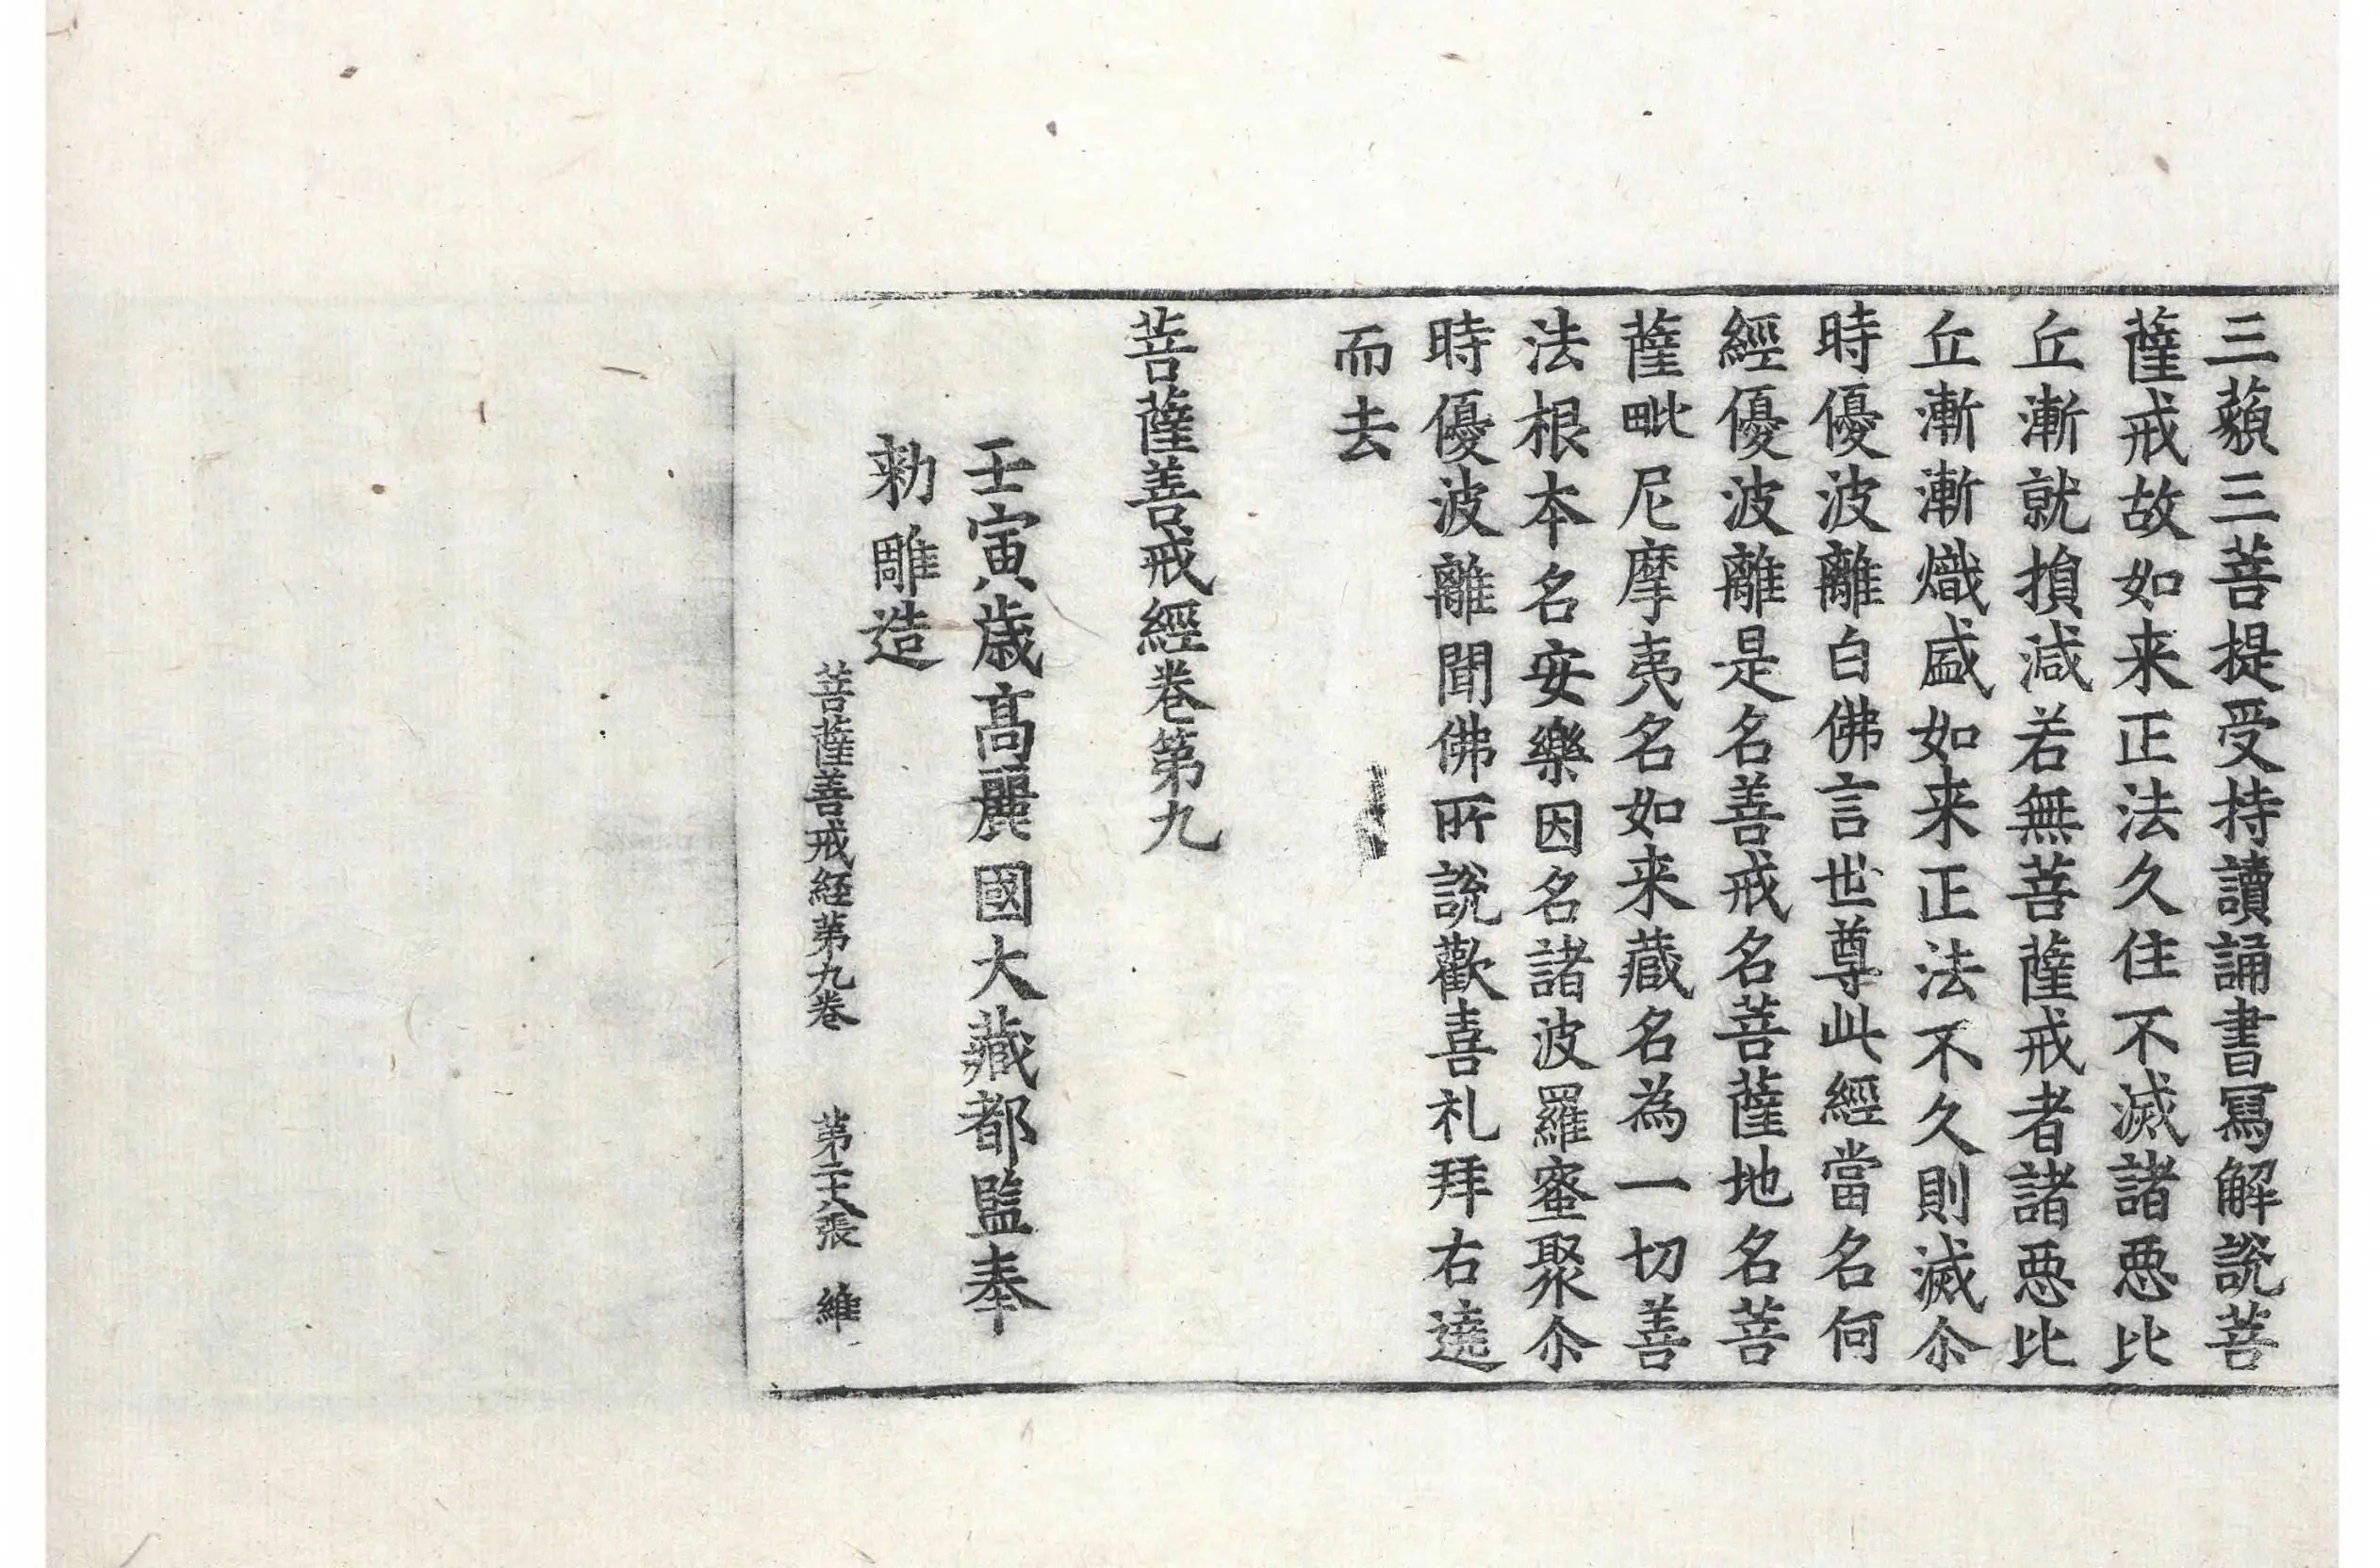 三藐三菩提受持讀誦書寫解說菩
薩戒故如来正法久住不滅諸惡比
丘漸就損減若無菩薩戒者諸惡比
丘漸漸熾盛如来正法不久則滅尒
時優波離白佛言世尊此經當名何
經優波離是名善戒名菩薩地名菩
薩毗尼摩夷名如来藏名為一切善
法根本名安樂因名諸波羅蜜聚尒
時優波離聞佛所說歡喜礼拜右遶
而去
菩薩善戒經卷第九
壬寅歳髙麗國大藏都監奉
勑雕造
菩薩善戒経第九卷　第二十八張　維